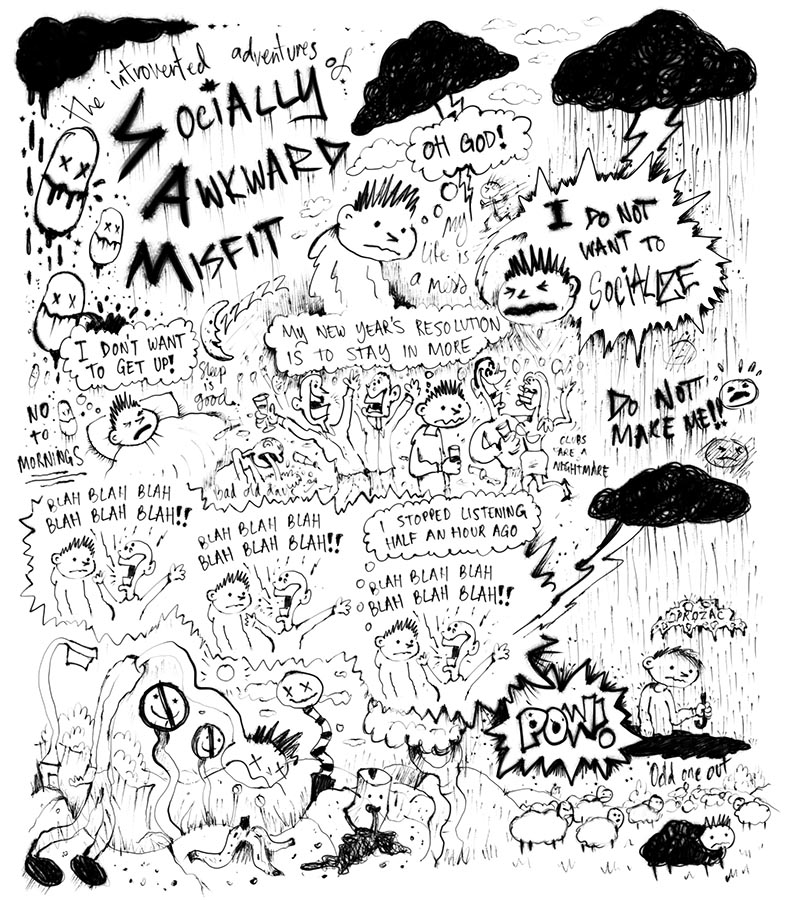 the introverted adventures of
SOCIALLY
AWKWARD
MISFIT
OH GOD!
My
life is
a mess
I DO NOT
WANT TO
SOCIALIZE
I DON'T WANT
TO GET UP!
Sleep
is
good.
NO
to
MORNINGS
MY NEW YEAR'S RESOLUTION
IS TO STAY IN MORE
bad old days
CLUBS
ARE A
NIGHTMARE
DO NOT
MAKE ME!!
BLAH BLAH BLAH
BLAH BLAH BLAH!!
BLAH BLAH BLAH
BLAH BLAH BLAH!!
I STOPPED LISTENING
HALF AN HOUR AGO
BLAH BLAH BLAH
BLAH BLAH BLAH!!
PROZAC
POW!
Odd one out